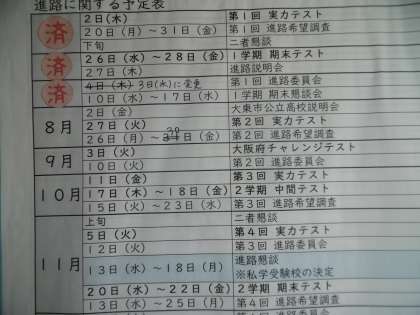 進路に関する予定表
済 2日(木) 第1回 実力テスト
20日(月)～31日(金) 第1回 進路希望調査
下旬 二者懇談
済 26日(水)～28日(金) 1学期 期末テスト
27日(木) 進路説明会
済 4日(木) 3日(水)に変更 第1回 進路委員会
10日(水)～17日(水) 1学期 期末懇談
8月 2日(金) 大東市公立高校説明会
27日(火) 第2回 実力テスト
26日(月)～30日(金) 第2回 進路希望調査
9月 3日(火) 大阪府チャレンジテスト
10日(火) 第2回 進路委員会
10月 11日(金) 第3回 実力テスト
17日(木)～18日(金) 2学期 中間テスト
15日(火)～23日(水) 第3回 進路希望調査
11月 上旬 二者懇談
5日(火) 第4回 実力テスト
12日(火) 第3回 進路委員会
13日(水)～18日(月) 進路懇談
※私学受験校の決定
20日(水)～22日(金) 2学期 期末テスト
13日(水)～25日(月) 第4回 進路希望調査